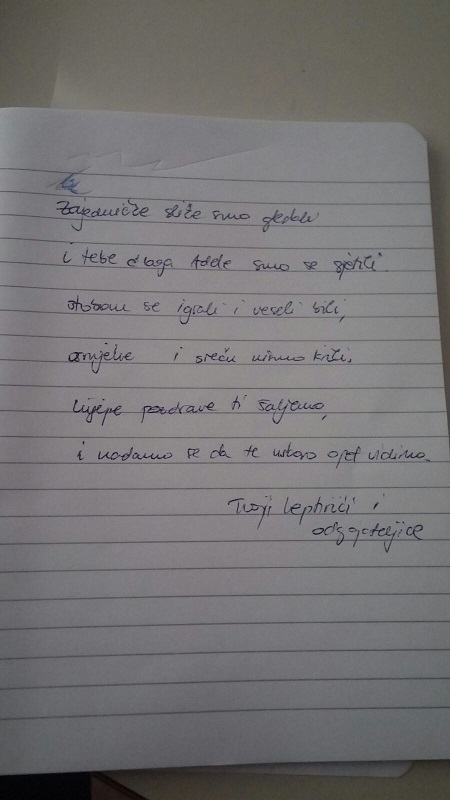 Zajedničke slike smo gledali
i tebe draga Adde smo se sjetili.
stobom se igrali i veseli bili,
osmijehe i sreću nismo krili,
Lijepe pozdrave ti šaljemo,
i nadamo se da te uskoro opet vidimo.
Tvoji Leptirići i
odgojateljice